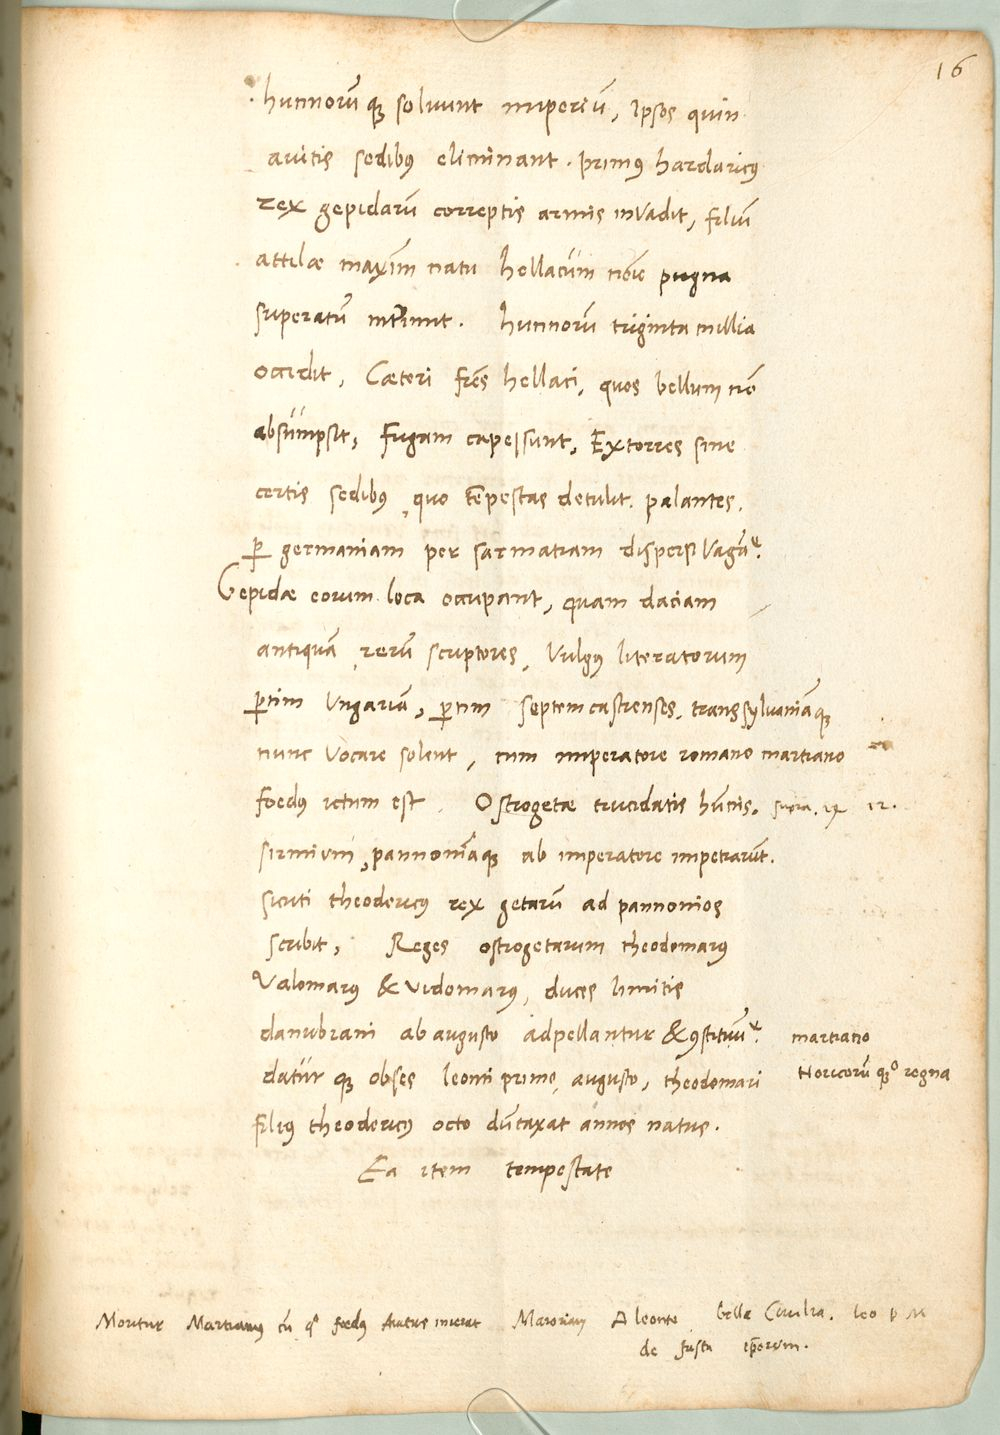 16
hunnorū qꝫ soluunt imperiū, Ipsos quin
auitis sedibꝰ eliminant. primꝰ hardaricꝰ
rex gepidarū correptis armis inVadit, filiū
attilæ maxīm natu hellacum pugna
superatū . hunnorū triginta millia
occidit, Cæteri frēs hellaci, quos bellum nō
absumpsit, Fugam capessunt, Extorres sine
certis sedibꝰ, quo tēpestas detulit. palantes.
ꝑ germaniam per sarmatiam dispersi
Gepidæ eorum loca occupant, quam daciam
antiquā, rerū scriptores, Vulgꝰ literatorum
ꝑtim Vngariā, ꝑtim septemcastrenses, transsylvaniāqꝫ
nunc Vocare solent, cum imperatore romano martiano
foedus ictum est. Ostrogetæ trucidatis hūnis, supra. ix 12.
sirmium, pannoniāqꝫ ab imperatore impetrarūt.
sicuti theodericꝰ rex getarū ad pannonios
scribit, Reges ostrogetarum theodomarꝰ
Valomarꝰ & vidomarꝰ, duces limitis
danubiani ab augusto adpellantur &
martiano
Noricorū qꝫ regna
datur qꝫ obses leoni primo, augusto, theodomari
filiꝰ theodericꝰ octo dūtaxat annos natus.
Ea item tempestate
Moritur Martianꝰ cū foedus A leonte bella Civilia. Leo
de